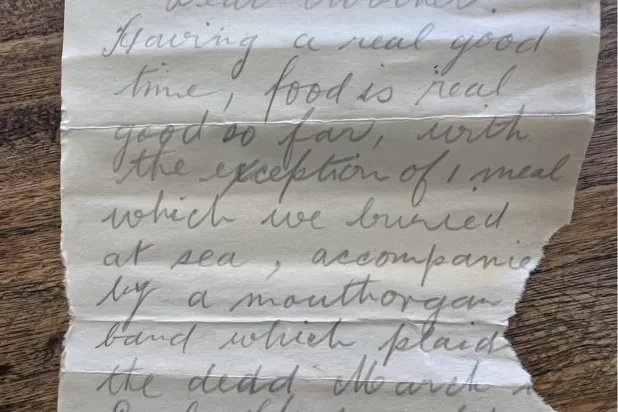 Dear Mother.
Having a real good
time, food is real
good so far, with
the exception of 1 meal
which we buried
at sea, accompanie
by a mouthorgan
band which plaid
the dedd March